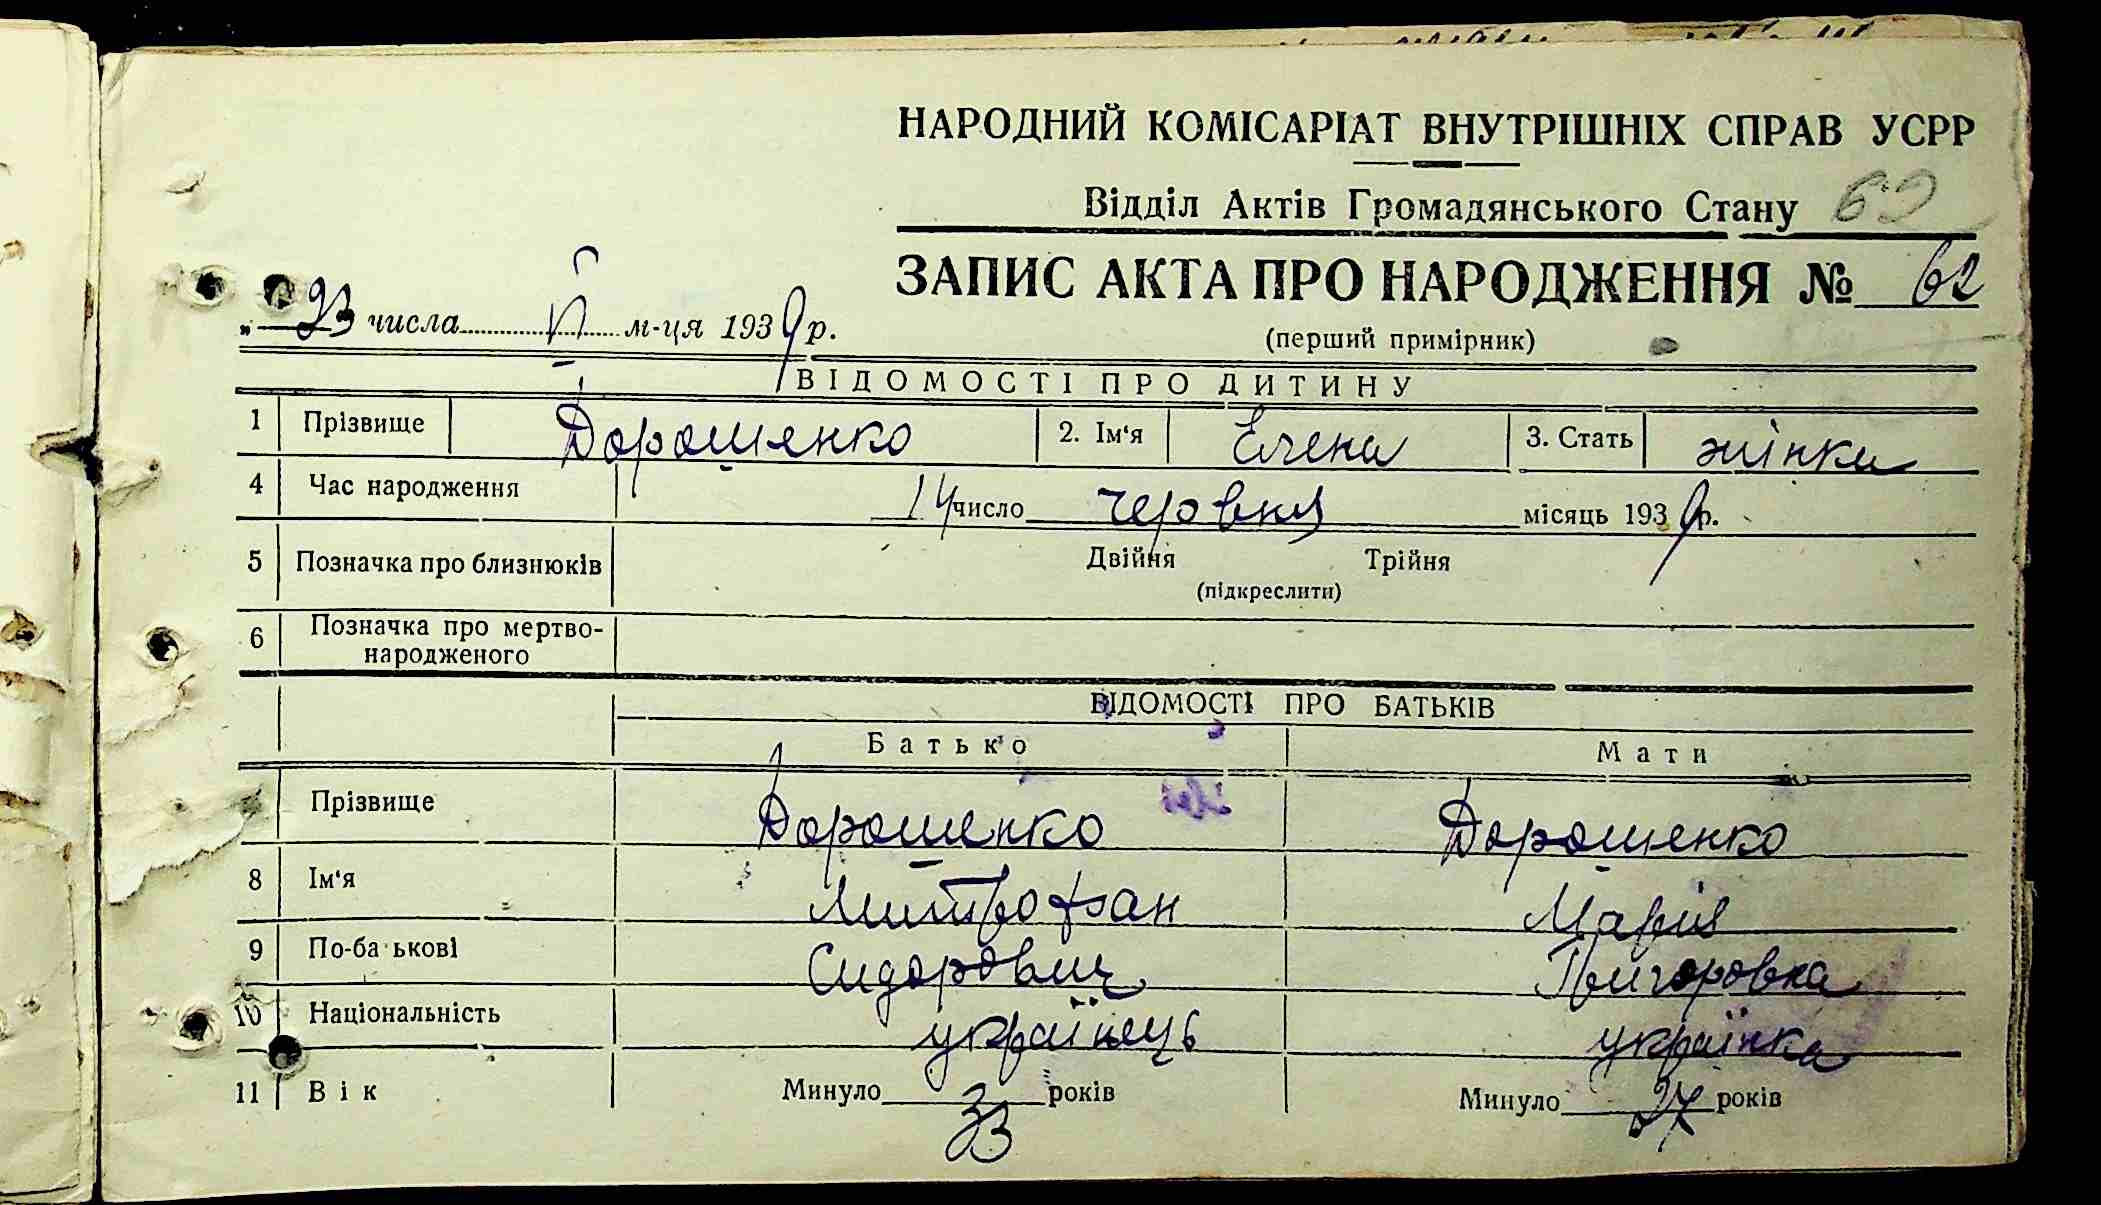 НАРОДНИЙ КОМІСАРІАТ ВНУТРІШНІХ СПРАВ УСРР
Відділ Актів Громадянського Стану
ЗАПИС АКТА ПРО НАРОДЖЕННЯ № 62
„ 23 числа VI м-ця 1939 р.
(перший примірник)
ВІДОМОСТІ ПРО ДИТИНУ
1 Прізвище Дорошенко 2. Ім‘я Елена 3. Стать жінка
4 Час народження 14 число червня місяць 1939 р.
5 Позначка про близнюків Двійня Трійня
(підкреслити)
6 Позначка про мертво-
народженого
ВІДОМОСТІ ПРО БАТЬКІВ
Батько Мати
Прізвище Дорошенко Дорошенко
8 Ім‘я Митрофан Марія
9 По-ба ькові Сидорович Григоровна
10 Національність українець українка
11 Вік Минуло 33 років Минуло 27 років